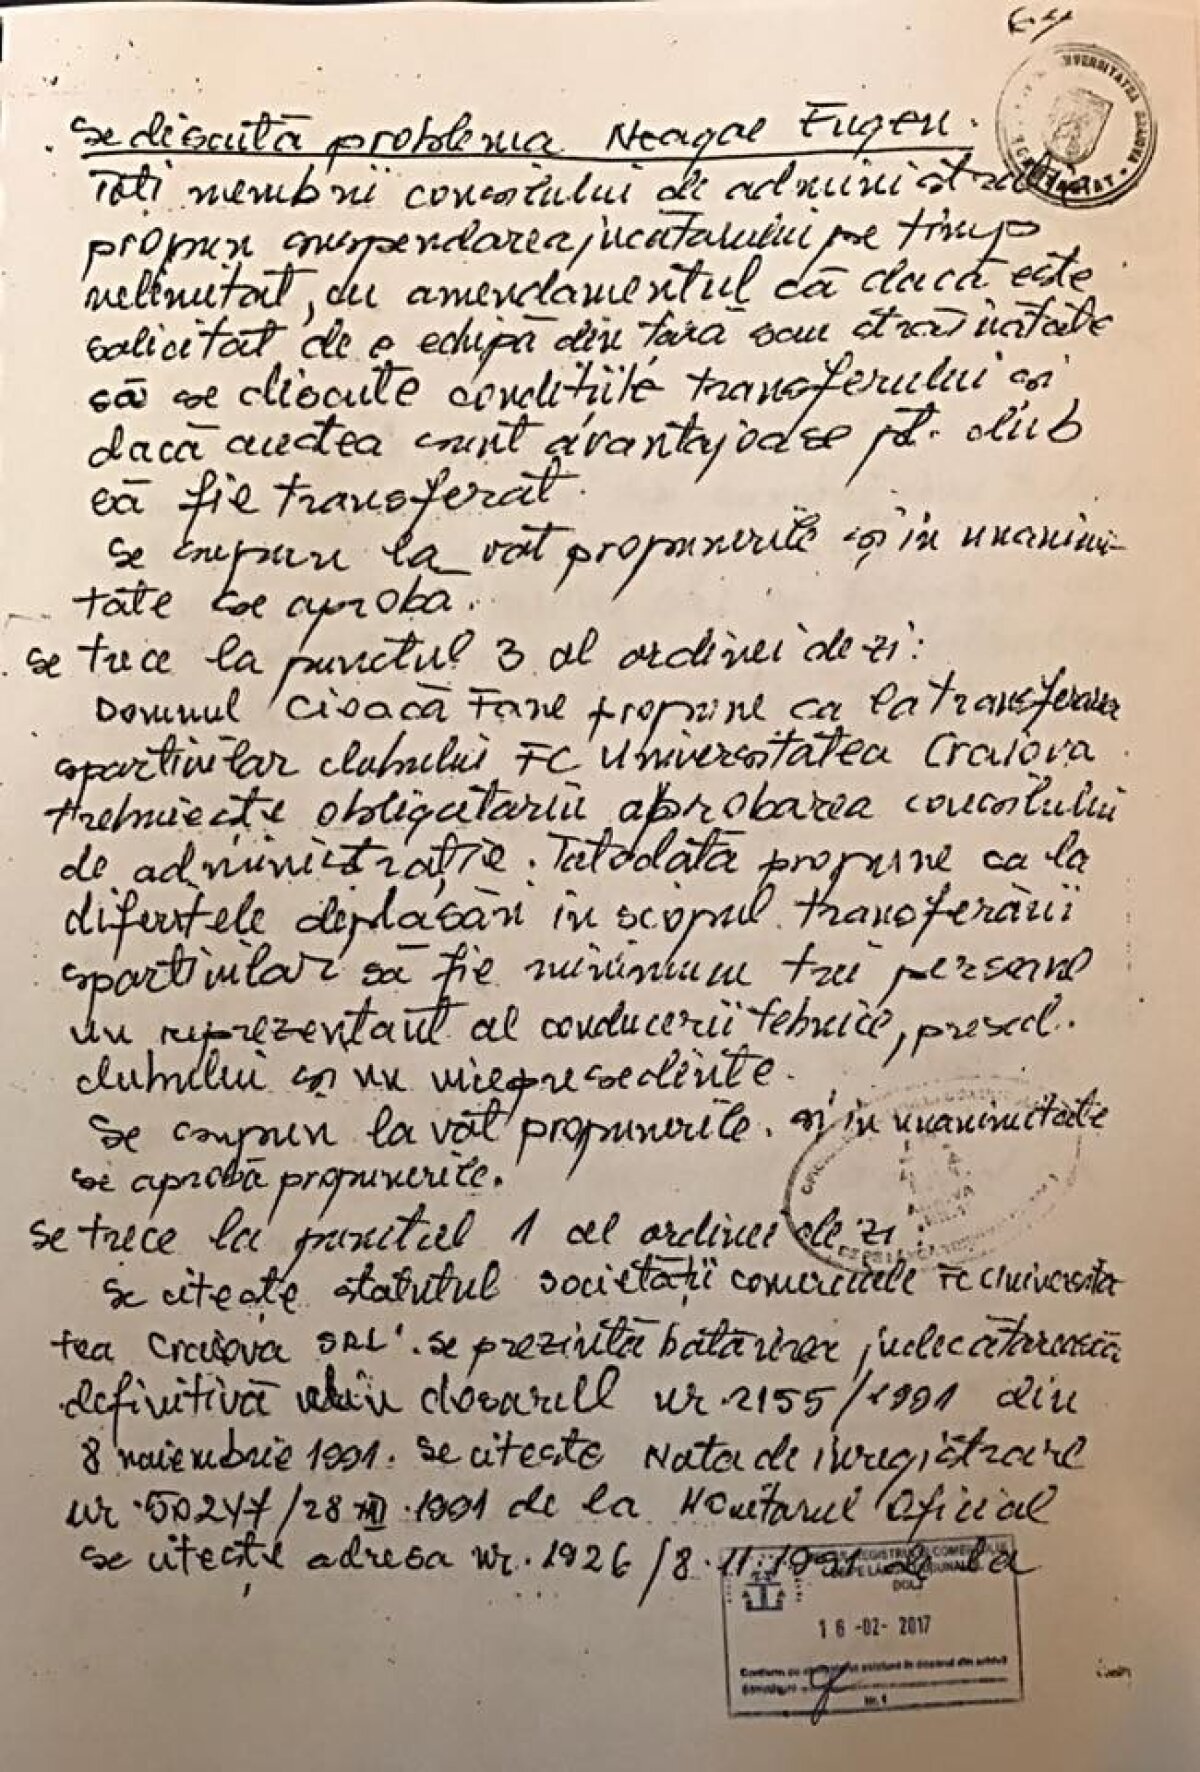 Se discută problema Neagoe Eugen.
Toți membrii consiliului de administrație
propun suspendarea jucătorului pe timp
nelimitat, cu amendamentul că dacă este
solicitat de o echipă din țară sau străinătate
să se discute condițiile transferului și
dacă acestea sunt avantajoase pt. club
să fie transferat.
Se supun la vot propunerile și în unanimi-
tate se aproba.
Se trece la punctul 3 al ordinei de zi:
Domnul Cioacă Fane propune ca la transferarea
sportivilor clubului FC Universitatea Craiova
trebuiește obligatoriu aprobarea consiliului
de administrație. Totodată propune ca la
diferitele deplasări în scopul transferării
sportivilor să fie minimum trei persoane
un reprezentant al conducerii tehnice, presed.
clubului și un vicepresedinte.
Se supun la vot propunerile. și în unanimitate
se aprobă propunerile.
Se trece la punctul 1 al ordinei de zi:
Se citește statutul societății comerciale FC Universita-
tea Craiova SRL. Se prezintă hotărîrea judecătorească
definitivă din dosarul nr. 2155/1991 din
8 noiembrie 1991. Se citeste Nota de inregistrare
nr. 50247/28 XII. 1991 de la Monitorul Oficial
Se citește adresa nr. 1926/8.11.1991 de la
REGISTRUL COMERȚULUI
DOLJ
16-02-2017
nr. 1